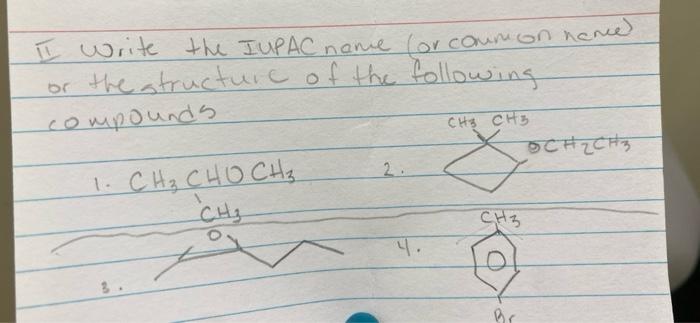 II Write the IUPAC name (or common name)
or the structure of the following
compounds
CH3 CH3
OCH2CH3
1. CH3 CHO CH3
2.
CH3
CH3
O
4.
3.
Br